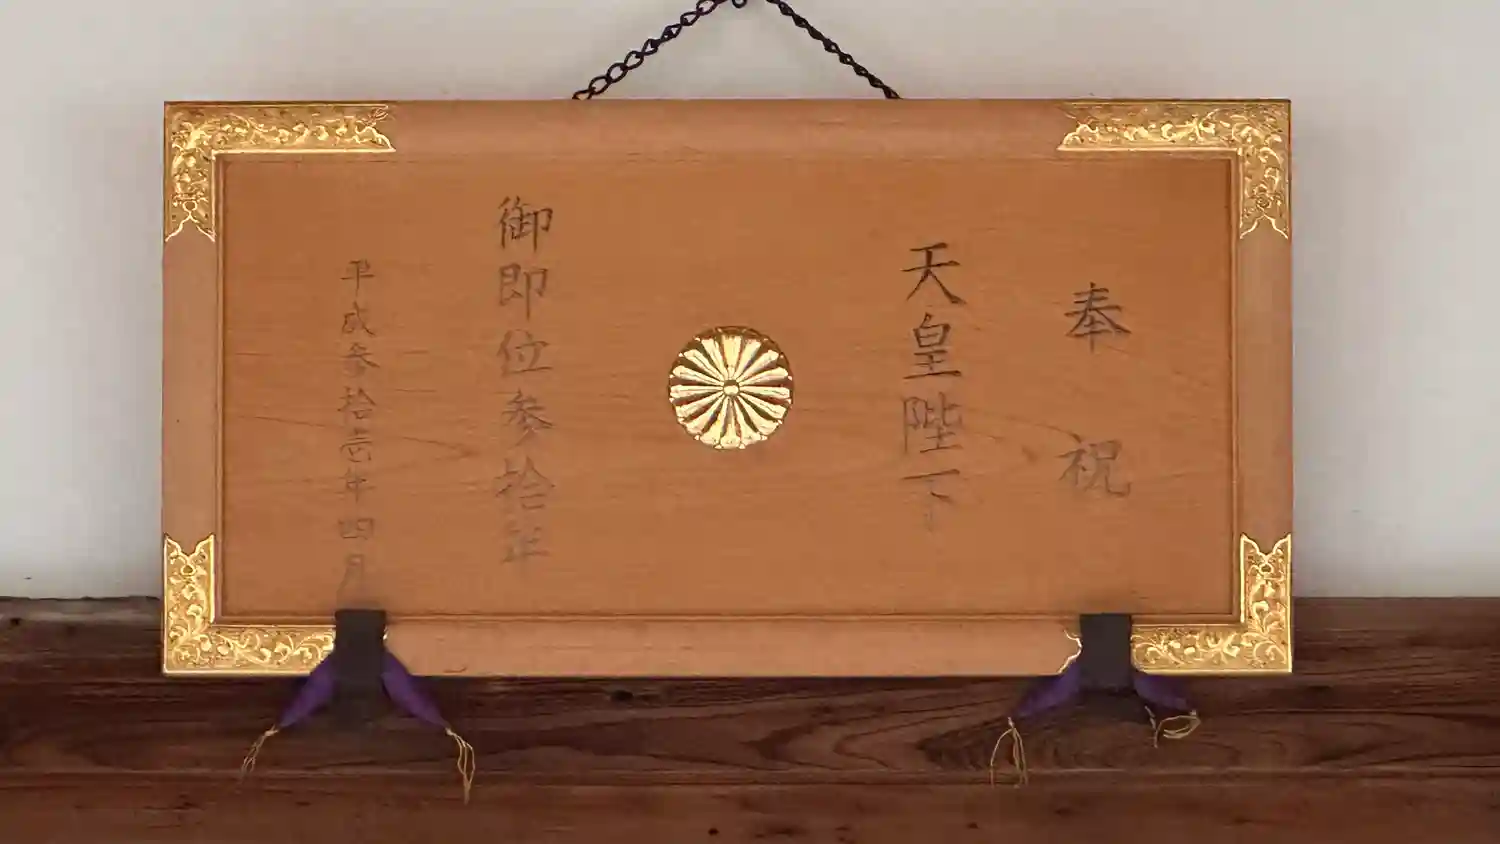 奉祝
天皇陛下
御即位参拾年
平成参拾壱年四月